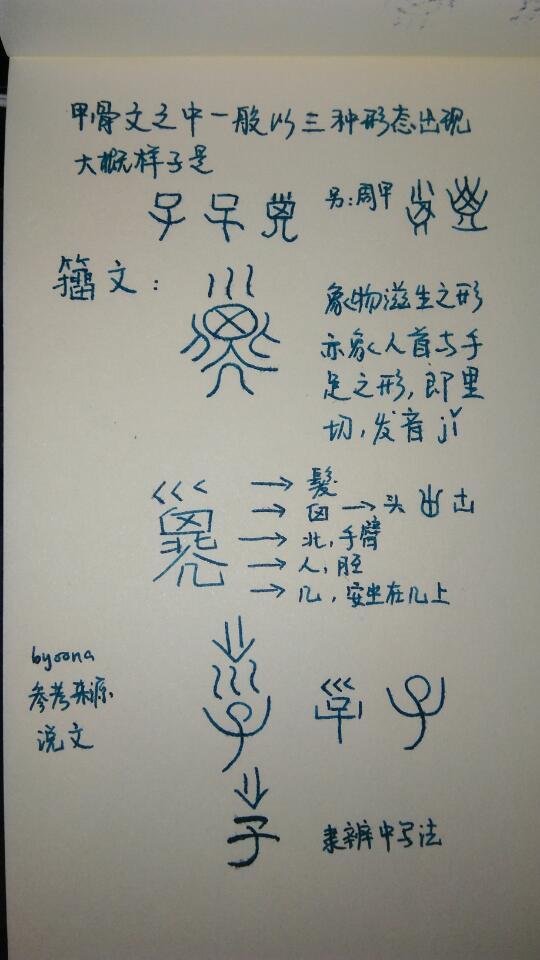 甲骨文之中一般以三种形态出现
大概样子是
另:周甲
籀文:
象物滋生之形
亦象人首与手
足之形,即里
切,发音 jǐ
→ 髮
→ 囟 → 头
→ 北,手臂
→ 人,胫
→ 几,安坐在几上
byoona
参考来源
说文
子
隶辨中写法